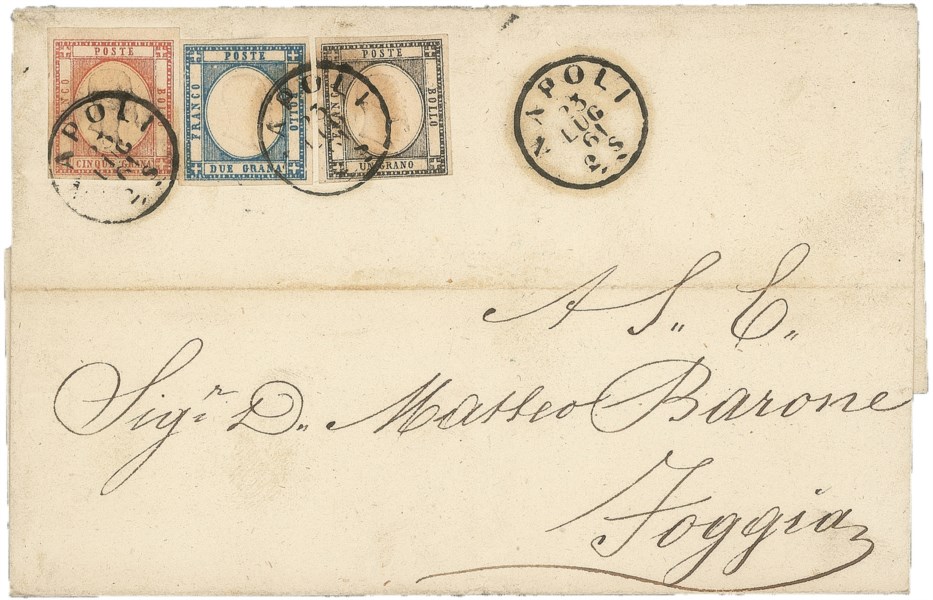 POSTE
FRANCO
BOLLO
CINQUE GRANA
POSTE
FRANCO
BOLLO
DUE GRANA
POSTE
FRANCO
BOLLO
UN GRANO
NAPOLI
NAPOLI
NAPOLI
25
LUG
61
2.S.
A S,, E,,
Sigr D,, Matteo Barone
Foggia